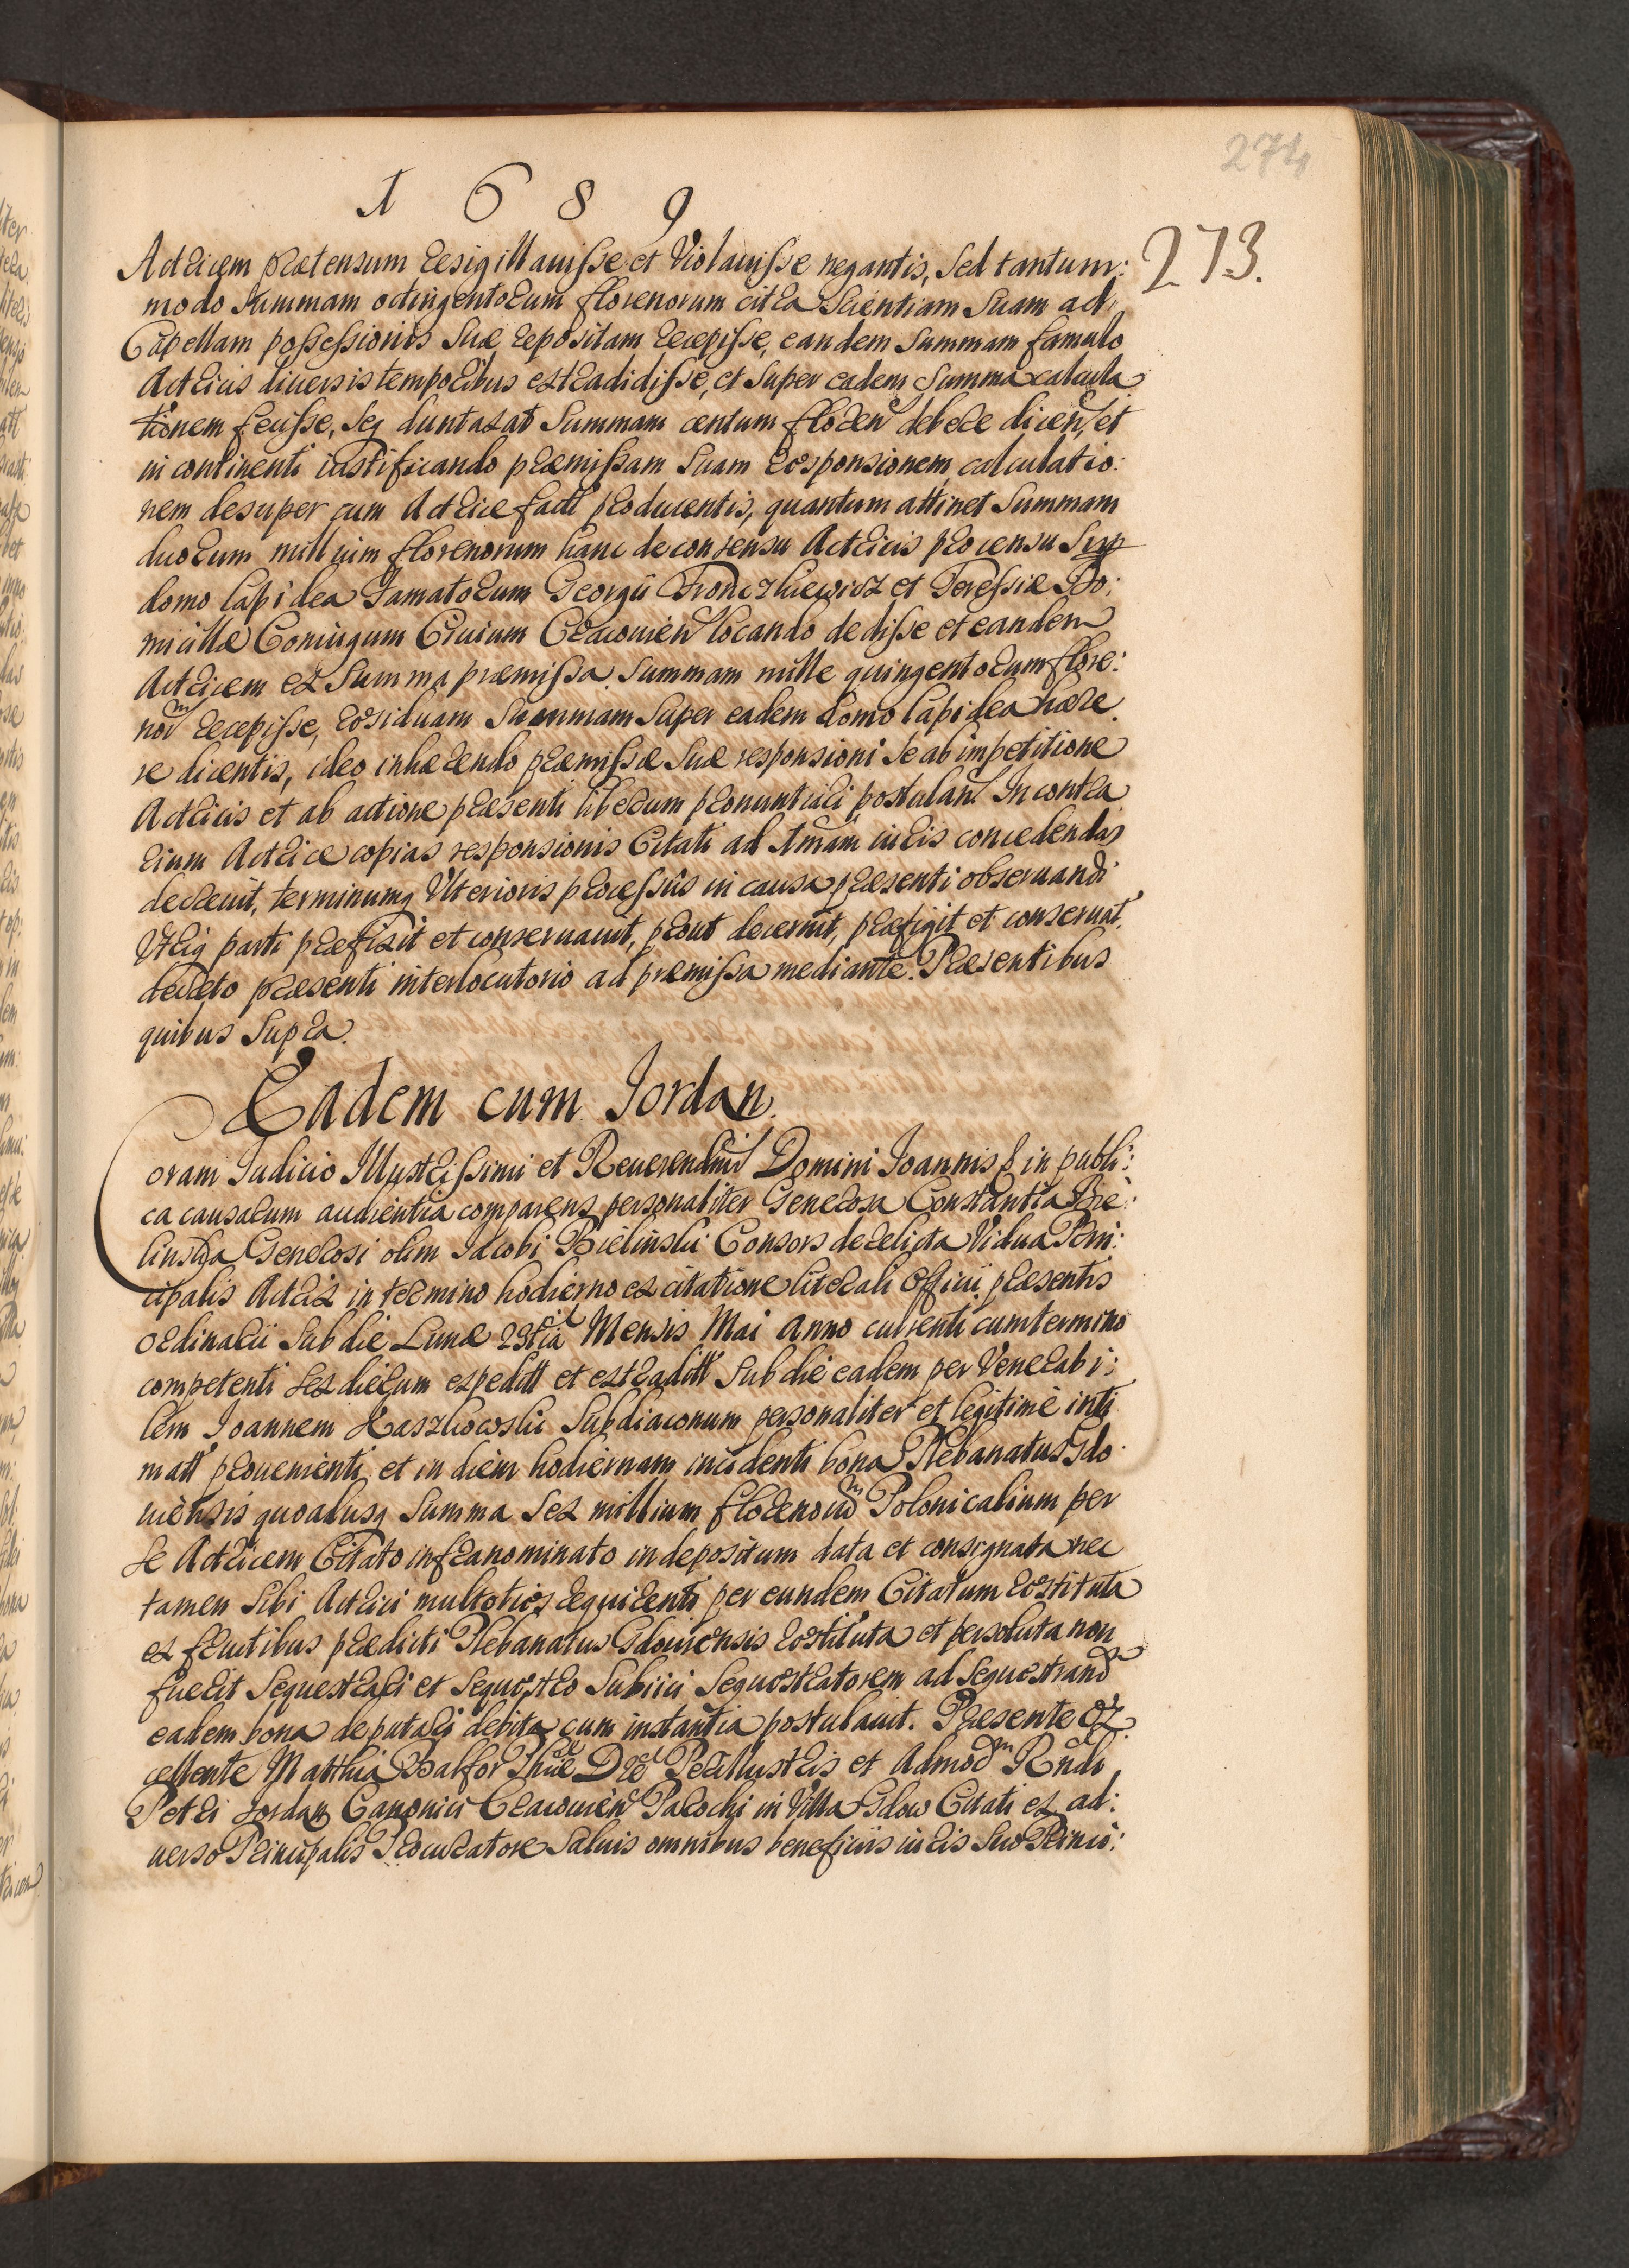 274
1689
273.
Actricem prætensum resigillauisse et Violauisse negantis, sed tantum:
modo Summam octingentorum florenorum citra scientiam Suam ad
Capellam possessionis Suæ repositam recepisse, eandem Summam famulo
Actricis diuersis temporibus extradidisse, et super eadem Summa calcula
tionem fecisse, seq duntaxat Summam centum floren debere dicen, et
in continenti iustificando præmissam Suam responsionem, calculatio:
nem desuper cum Actrice fact producentis, quantum attinet Summam
duorum millium florenorum hanc de consensu Actricis pro censu Sup
domo lapidea Famatorum Georgii Fronczkiewicz et Teressiæ Do:
micillæ Coniugum Ciuium Cracouien locando dedisse et eandem
Actricem ex Summa præmissa Summam mille quingentorum flore:
norū recepisse, residuam Summam super eadem domo lapidea hære
re dicentis, ideo inhærendo præmissæ Suæ responsioni se ab impetitione
Actricis et ab actione præsenti liberum pronuntiari postulan. In contra
rium Actrice copias responsionis Citati ad Amam iuris concedendas
decreuit, terminumq Vlterioris processus in causa præsenti obseruandi
Vtriq parti præfixit et conseruauit, prout decernit, præfigit et conseruat
decreto præsenti interlocutorio ad præmissa mediante. Præsentibus
quibus Supra.
Eadem cum Jordan.
Coram Judicio Illustrissimi et Reuerendmi Domini Joannis & in publi:
ca causarum audientia comparens personaliter Generosa Constantia Bie:
linska Generosi olim Jacobi Bielinski Consors derelicta Vidua Prin:
cipalis Actrix in termino hodierno ex citatione literali Officii præsentis
ordinarii Sub die Lunæ 23tia Mensis Mai Anno currenti cum termino
competenti sex dierum expedit et extradit Sub die eadem per Venerabi:
lem Joannem Kaszkowski Subdiaconum personaliter et legitime inti
mat prouenienti, et in diem hodiernam incidenti bona Plebanatus Gdo
uiensis quoadusq Summa Sex millium florenorū Polonicalium per
se Actricem Citato infranominato in depositum data et consignata nec
tamen Sibi Actrici multoties requirenti per eundem Citatum restituta
ex fructibus prædicti Plebanatus Gdouiensis restituta et persoluta non
fuerit Sequestrari et Sequestro Subiici Sequestratorem ad Sequestrand
eadem bona deputari debita cum instantia postulauit. Præsente Ex
cellente Matthia Balfor Phiæ Dre Perillustris et Admod Rndi
Petri Jordan Canonici Cracouien Parochi in Villa Gdow Citati ex ad:
uerso Principalis Procuratore Saluis omnibus beneficiis iuris Suo Princi: